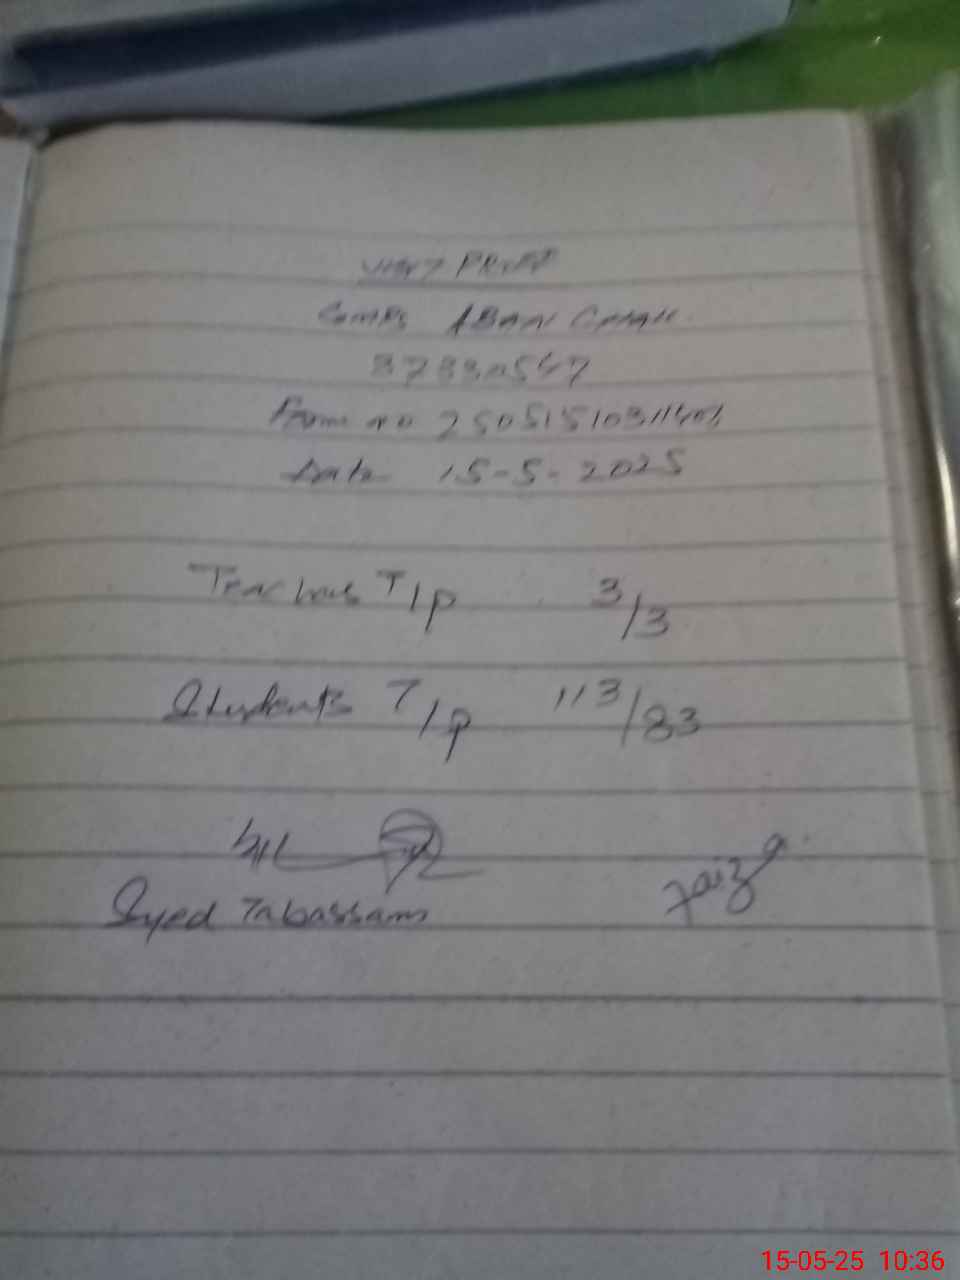 VISIT PROOF
GMPS ABAN GHAH
37330547
From no 250515103114
Date 15-5-2025
Teachers T/p 3/3
Students T/p 113/83
Syed Tabassam
Faiza
15-05-25 10:36